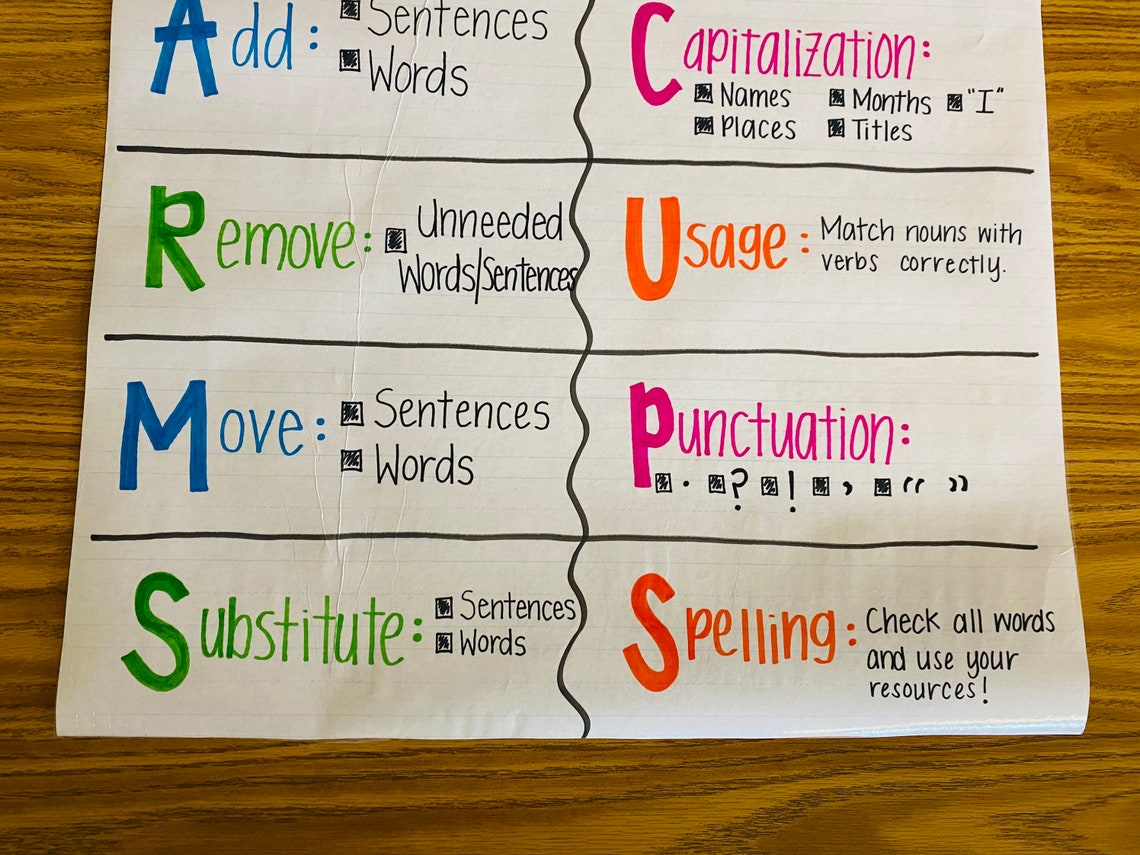 Add: Sentences
Words
Remove: Unneeded
Words/Sentences
Move: Sentences
Words
Substitute: Sentences
Words
Capitalization:
Names Months "I"
Places Titles
Usage: Match nouns with
verbs correctly.
Punctuation:
. ? ! , " "
Spelling: Check all words
and use your
resources!